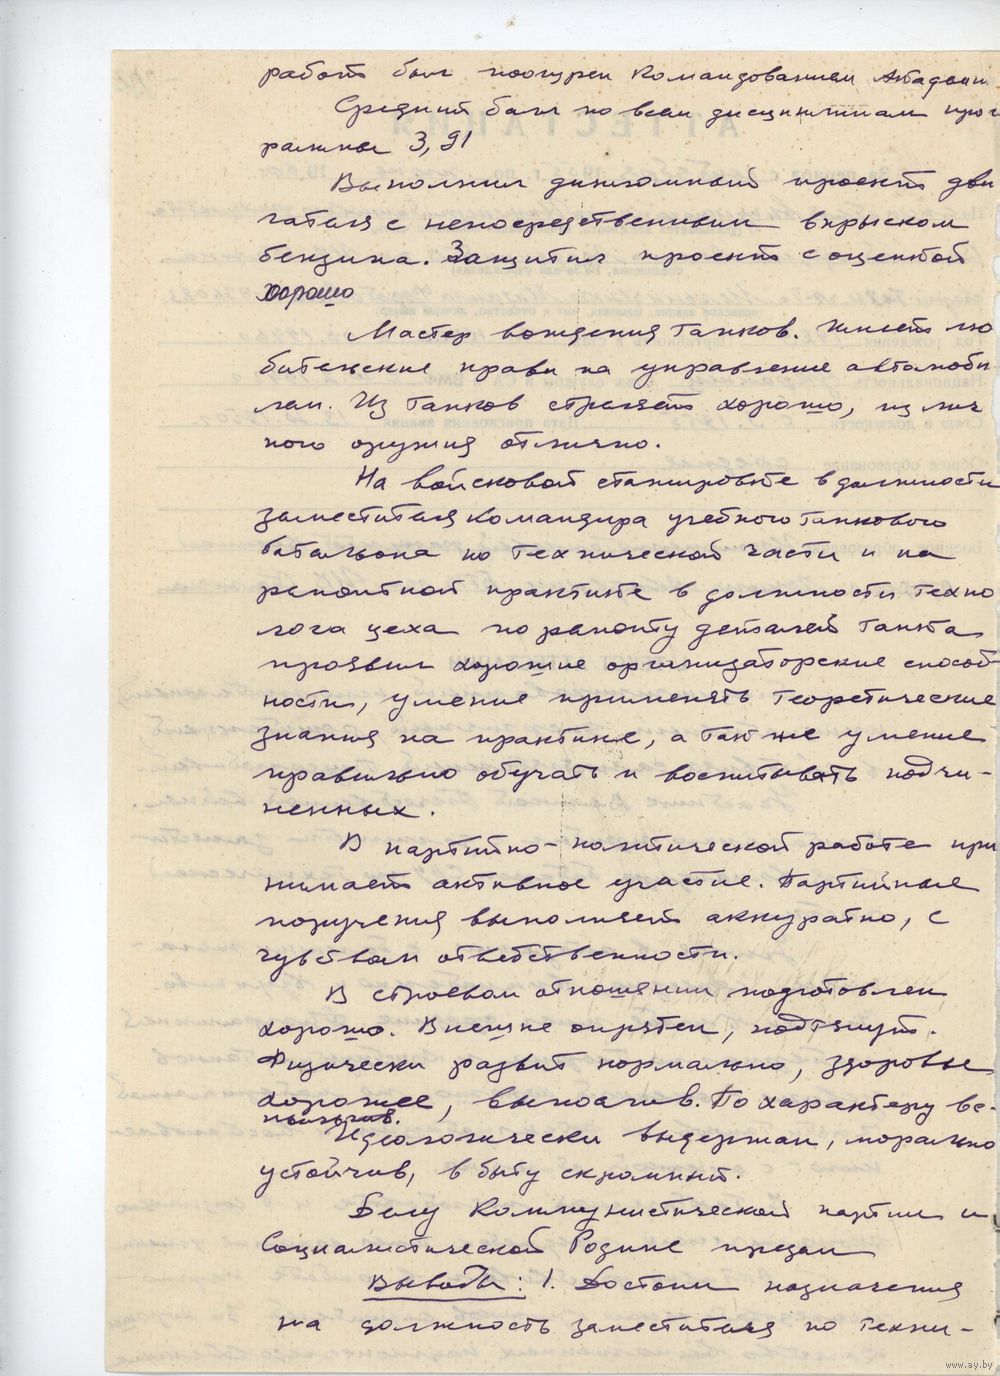 работ был поощрен командованием Академии.
Средний балл по всем дисциплинам прог
раммы 3,91
Выполнил дипломный проект дви
гателя с непосредственным впрыском
бензина. Защитил проект с оценкой
хорошо
Мастер вождения танков. Имеет лю
бительские права на управление автомоби
лем. Из танков стреляет хорошо, из лич
ного оружия отлично.
На войсковой стажировке в должности
заместителя командира учебного танкового
батальона по технической части и на
ремонтной практике в должности техно
лога цеха по ремонту деталей танка
проявил хорошие организаторские способ
ности, умение применять теоретические
знания на практике, а так же умение
правильно обучать и воспитывать подчи-
ненных.
В партийно-политической работе при
нимает активное участие. Партийные
поручения выполняет аккуратно, с
чувством ответственности.
В строевом отношении подготовлен
хорошо. Внешне опрятен, подтянут.
Физически развит нормально, здоровье
хорошее, вынослив. По характеру
Идеологически выдержан, морально
устойчив, в быту скромный.
Делу Коммунистической партии и
Социалистической Родине предан
Выводы: 1. Достоин назначения
на должность заместителя по техни-
www.ay.by